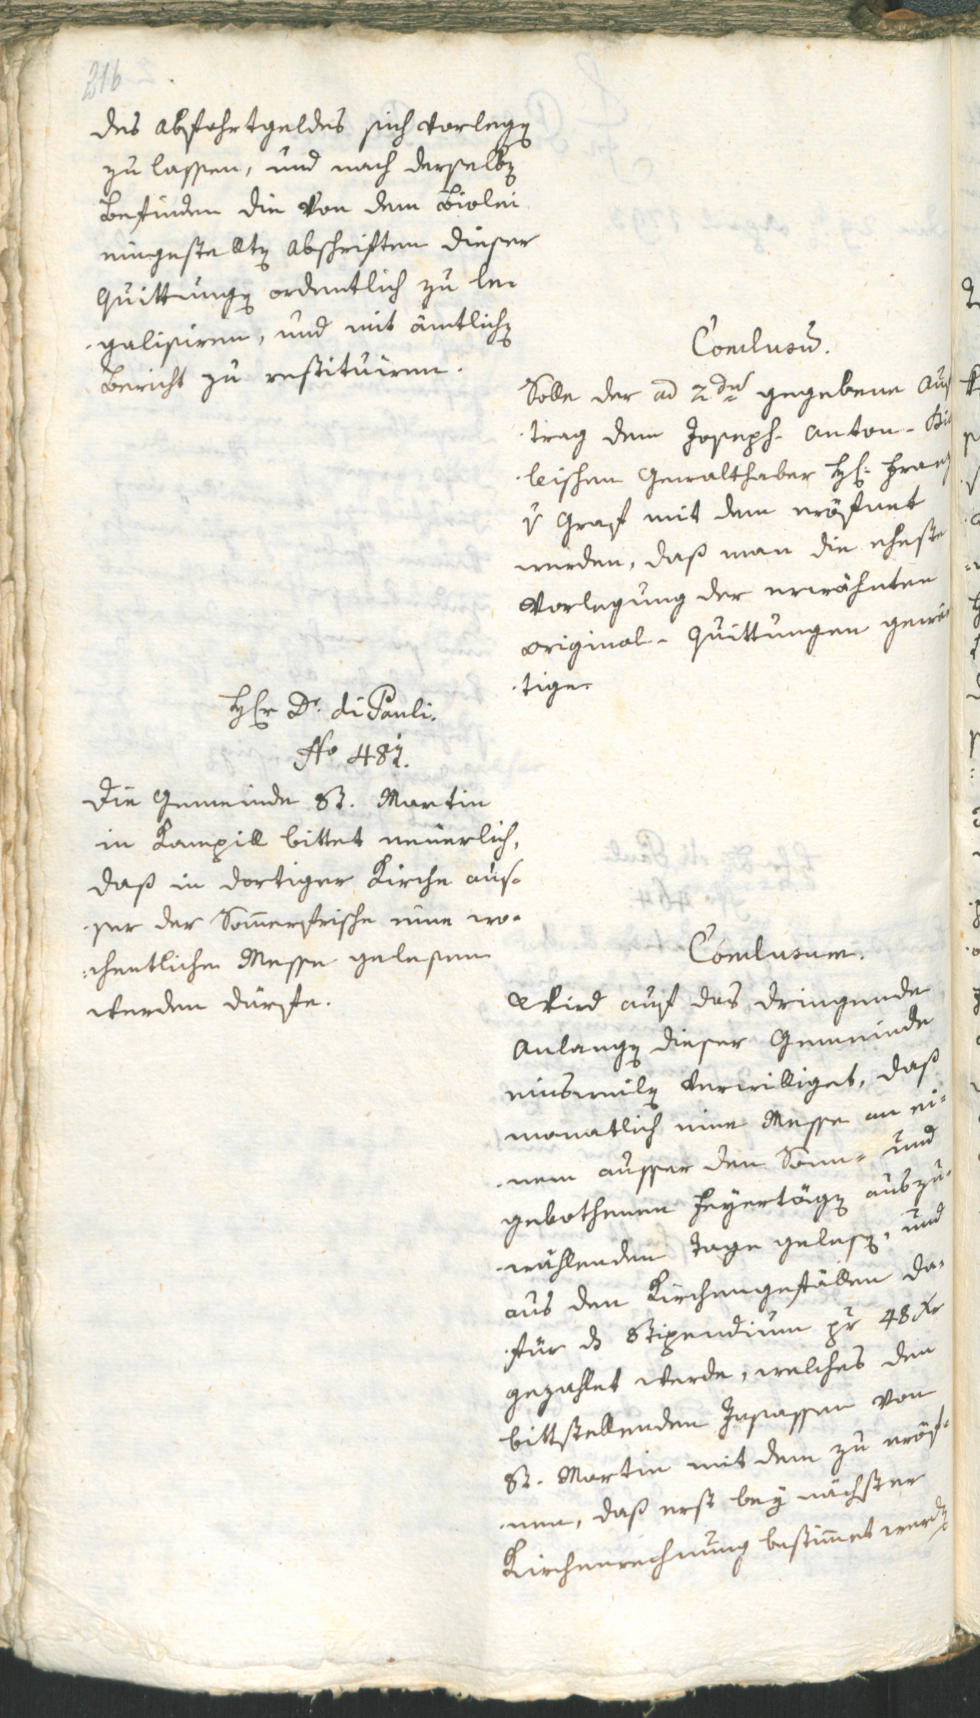 216
des Abfahrtgeldes sich vorlegen
zu lassen, und nach derselben
Befinden die von dem Biolei
eingestellten Abschriften dieser
Quittungen ordentlich zu le-
galisiren, und mit ämtlichen
Bericht zu restituiren.
Conclusum.
Solle der ad 2dum gegebene Auf
trag dem Joseph-Anton-Bio
leischen Gewalthaber H: Franz
v Graf mit dem eröfnet
werden, daß man die eheste
Vorlegung der erwähnten
original-Quittungen gewär
tige.
Hr Dr. di Pauli.
No 481.
Die Gemeinde St. Martin
in Kampill bittet neuerlich,
daß in dortiger Kirche aus-
ser der Somerfrische eine wo-
chentliche Messe gelesen
werden dürfte.
Conclusum.
Wird auf das dringende
Anlangen dieser Gemeinde
einsweilen verwilliget, daß
monatlich eine Messe an ei-
nem ausser den Sonn- und
gebothenen Feyertägen auszu-
wählenden Tage gelesen, und
aus den Kirchengefällen da-
für ds Stipendium pr 48 Xr
gezahlet werde, welches den
bittstellenden Insassen von
St. Martin mit dem zu eröf-
nen, daß erst bey nächster
Kirchenrechnung bestimmet werden